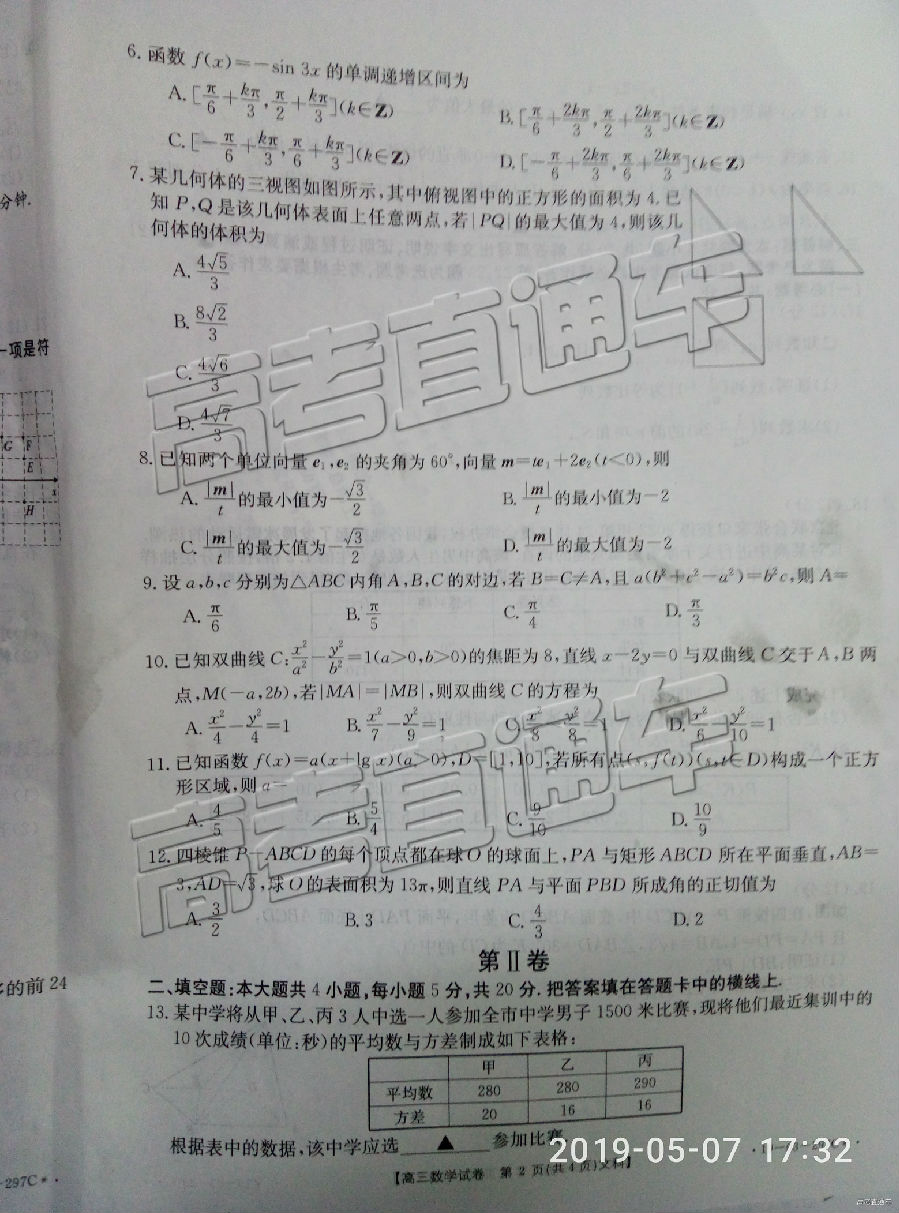 6. 函数 f(x)=-sin 3x 的单调递增区间为
A. [π/6+kπ/3, π/2+kπ/3](k∈Z)
B. [π/6+2kπ/3, π/2+2kπ/3](k∈Z)
C. [-π/6+kπ/3, π/6+kπ/3](k∈Z)
D. [-π/6+2kπ/3, π/6+2kπ/3](k∈Z)
7. 某几何体的三视图如图所示,其中俯视图中的正方形的面积为 4,已
知 P,Q 是该几何体表面上任意两点,若|PQ|的最大值为 4,则该几
何体的体积为
A. 4√5/3
B. 8√2/3
C. 4√6/3
D. 4√7/3
8. 已知两个单位向量 e₁,e₂ 的夹角为 60°,向量 m=te₁+2e₂(t<0),则
A. |m|/t 的最小值为-√3/2
B. |m|/t 的最小值为-2
C. |m|/t 的最大值为-√3/2
D. |m|/t 的最大值为-2
9. 设 a,b,c 分别为△ABC 内角 A,B,C 的对边,若 B=C≠A,且 a(b²+c²-a²)=b²c,则 A=
A. π/6
B. π/5
C. π/4
D. π/3
10. 已知双曲线 C: x²/a²-y²/b²=1(a>0,b>0)的焦距为 8,直线 x-2y=0 与双曲线 C 交于 A,B 两
点,M(-a,2b),若|MA|=|MB|,则双曲线 C 的方程为
A. x²/4-y²/4=1
B. x²/7-y²/9=1
C. x²/8-y²/8=1
D. x²/6-y²/10=1
11. 已知函数 f(x)=a(x+lg x)(a>0),D=[1,10],若所有点(s,f(t))(s,t∈D)构成一个正方
形区域,则 a=
A. 4/5
B. 5/4
C. 9/10
D. 10/9
12. 四棱锥 P-ABCD 的每个顶点都在球 O 的球面上,PA 与矩形 ABCD 所在平面垂直,AB=
3,AD=√3,球 O 的表面积为 13π,则直线 PA 与平面 PBD 所成角的正切值为
A. 3/2
B. 3
C. 4/3
D. 2
第Ⅱ卷
二、填空题:本大题共 4 小题,每小题 5 分,共 20 分.把答案填在答题卡中的横线上.
13. 某中学将从甲、乙、丙 3 人中选一人参加全市中学男子 1500 米比赛,现将他们最近集训中的
10 次成绩(单位:秒)的平均数与方差制成如下表格:
甲 乙 丙
平均数 280 280 290
方差 20 16 16
根据表中的数据,该中学应选 ▲ 参加比赛.
【高三数学试卷 第 2 页(共 4 页)文科】
2019-05-07 17:32
高考直通车
高考直通车
分钟.
一项是符
G F
E
x
H
的前 24
-297C